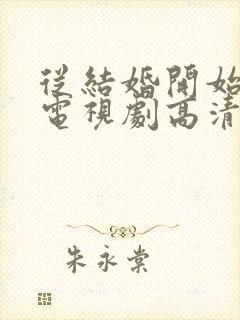 從結婚開始
電視劇高清
朱永棠